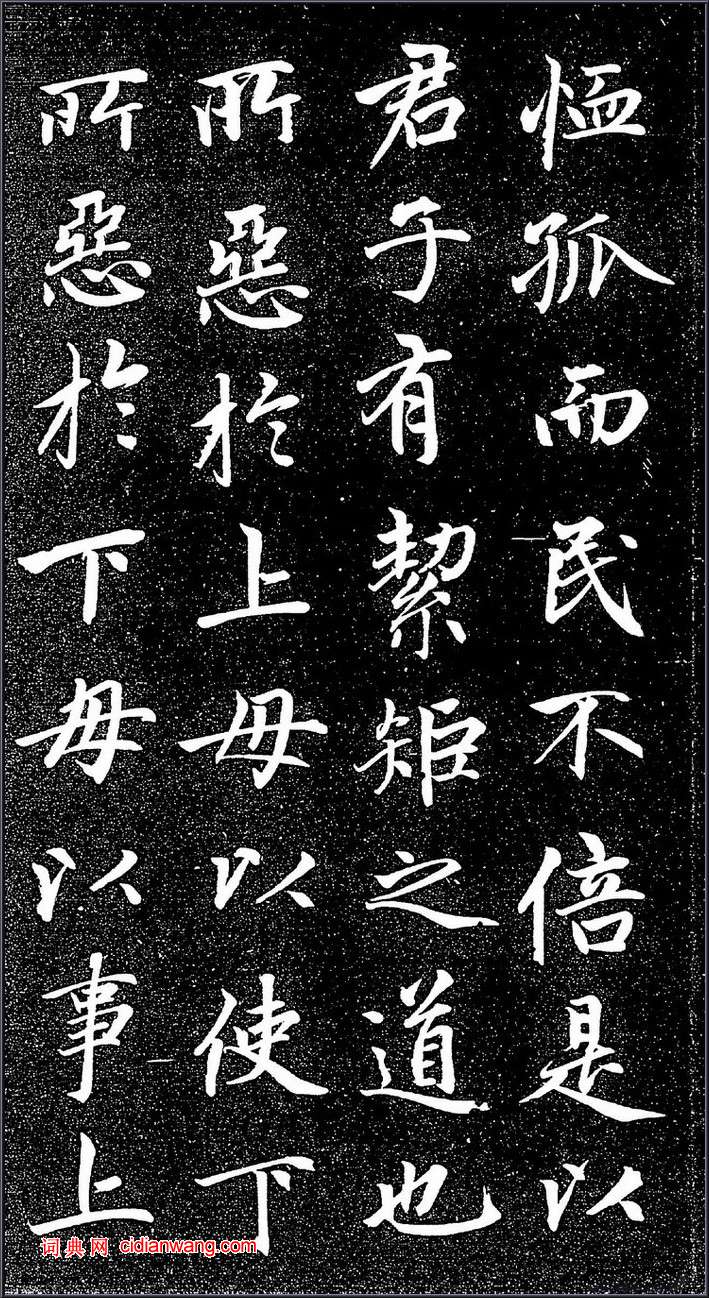 恤孤而民不倍是以
君子有絜矩之道也
所惡於上毋以使下
所惡於下毋以事上
词典网 cidianwang.com